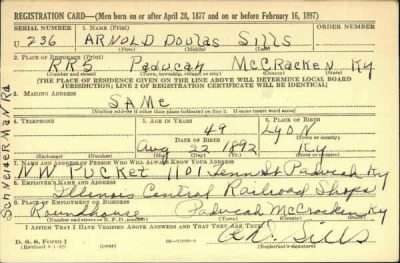 REGISTRATION CARD—(Men born on or after April 28, 1877 and on or before February 16, 1897)
SERIAL NUMBER
1. NAME (Print)
ORDER NUMBER
U 236
ARNOLD Douglas Sills
(First) (Middle) (Last)
2. PLACE OF RESIDENCE (Print)
RR5 Paducah McCracken Ky
(Number and street) (Town, township, village or city) (County) (State)
[THE PLACE OF RESIDENCE GIVEN ON THE LINE ABOVE WILL DETERMINE LOCAL BOARD
JURISDICTION; LINE 2 OF REGISTRATION CERTIFICATE WILL BE IDENTICAL]
3. MAILING ADDRESS
SAME
[Mailing address if other than place indicated on line 2. If same insert word same]
4. TELEPHONE
5. AGE IN YEARS
6. PLACE OF BIRTH
49
LYON
DATE OF BIRTH
(Town or county)
Aug 22 1892
Ky
(Mo.) (Day) (Yr.)
(State or country)
7. NAME AND ADDRESS OF PERSON WHO WILL ALWAYS KNOW YOUR ADDRESS
NW Pucket 1101 Tenn St Paducah Ky
8. EMPLOYER'S NAME AND ADDRESS
Illinois Central Railroad Shops
9. PLACE OF EMPLOYMENT OR BUSINESS
Roundhouse Paducah McCracken Ky
(Number and street or R. F. D. number) (Town) (County) (State)
I AFFIRM THAT I HAVE VERIFIED ABOVE ANSWERS AND THAT THEY ARE TRUE.
D. S. S. Form 1
A.D. Sills
(Registrant's signature)
Schneiderman Rd